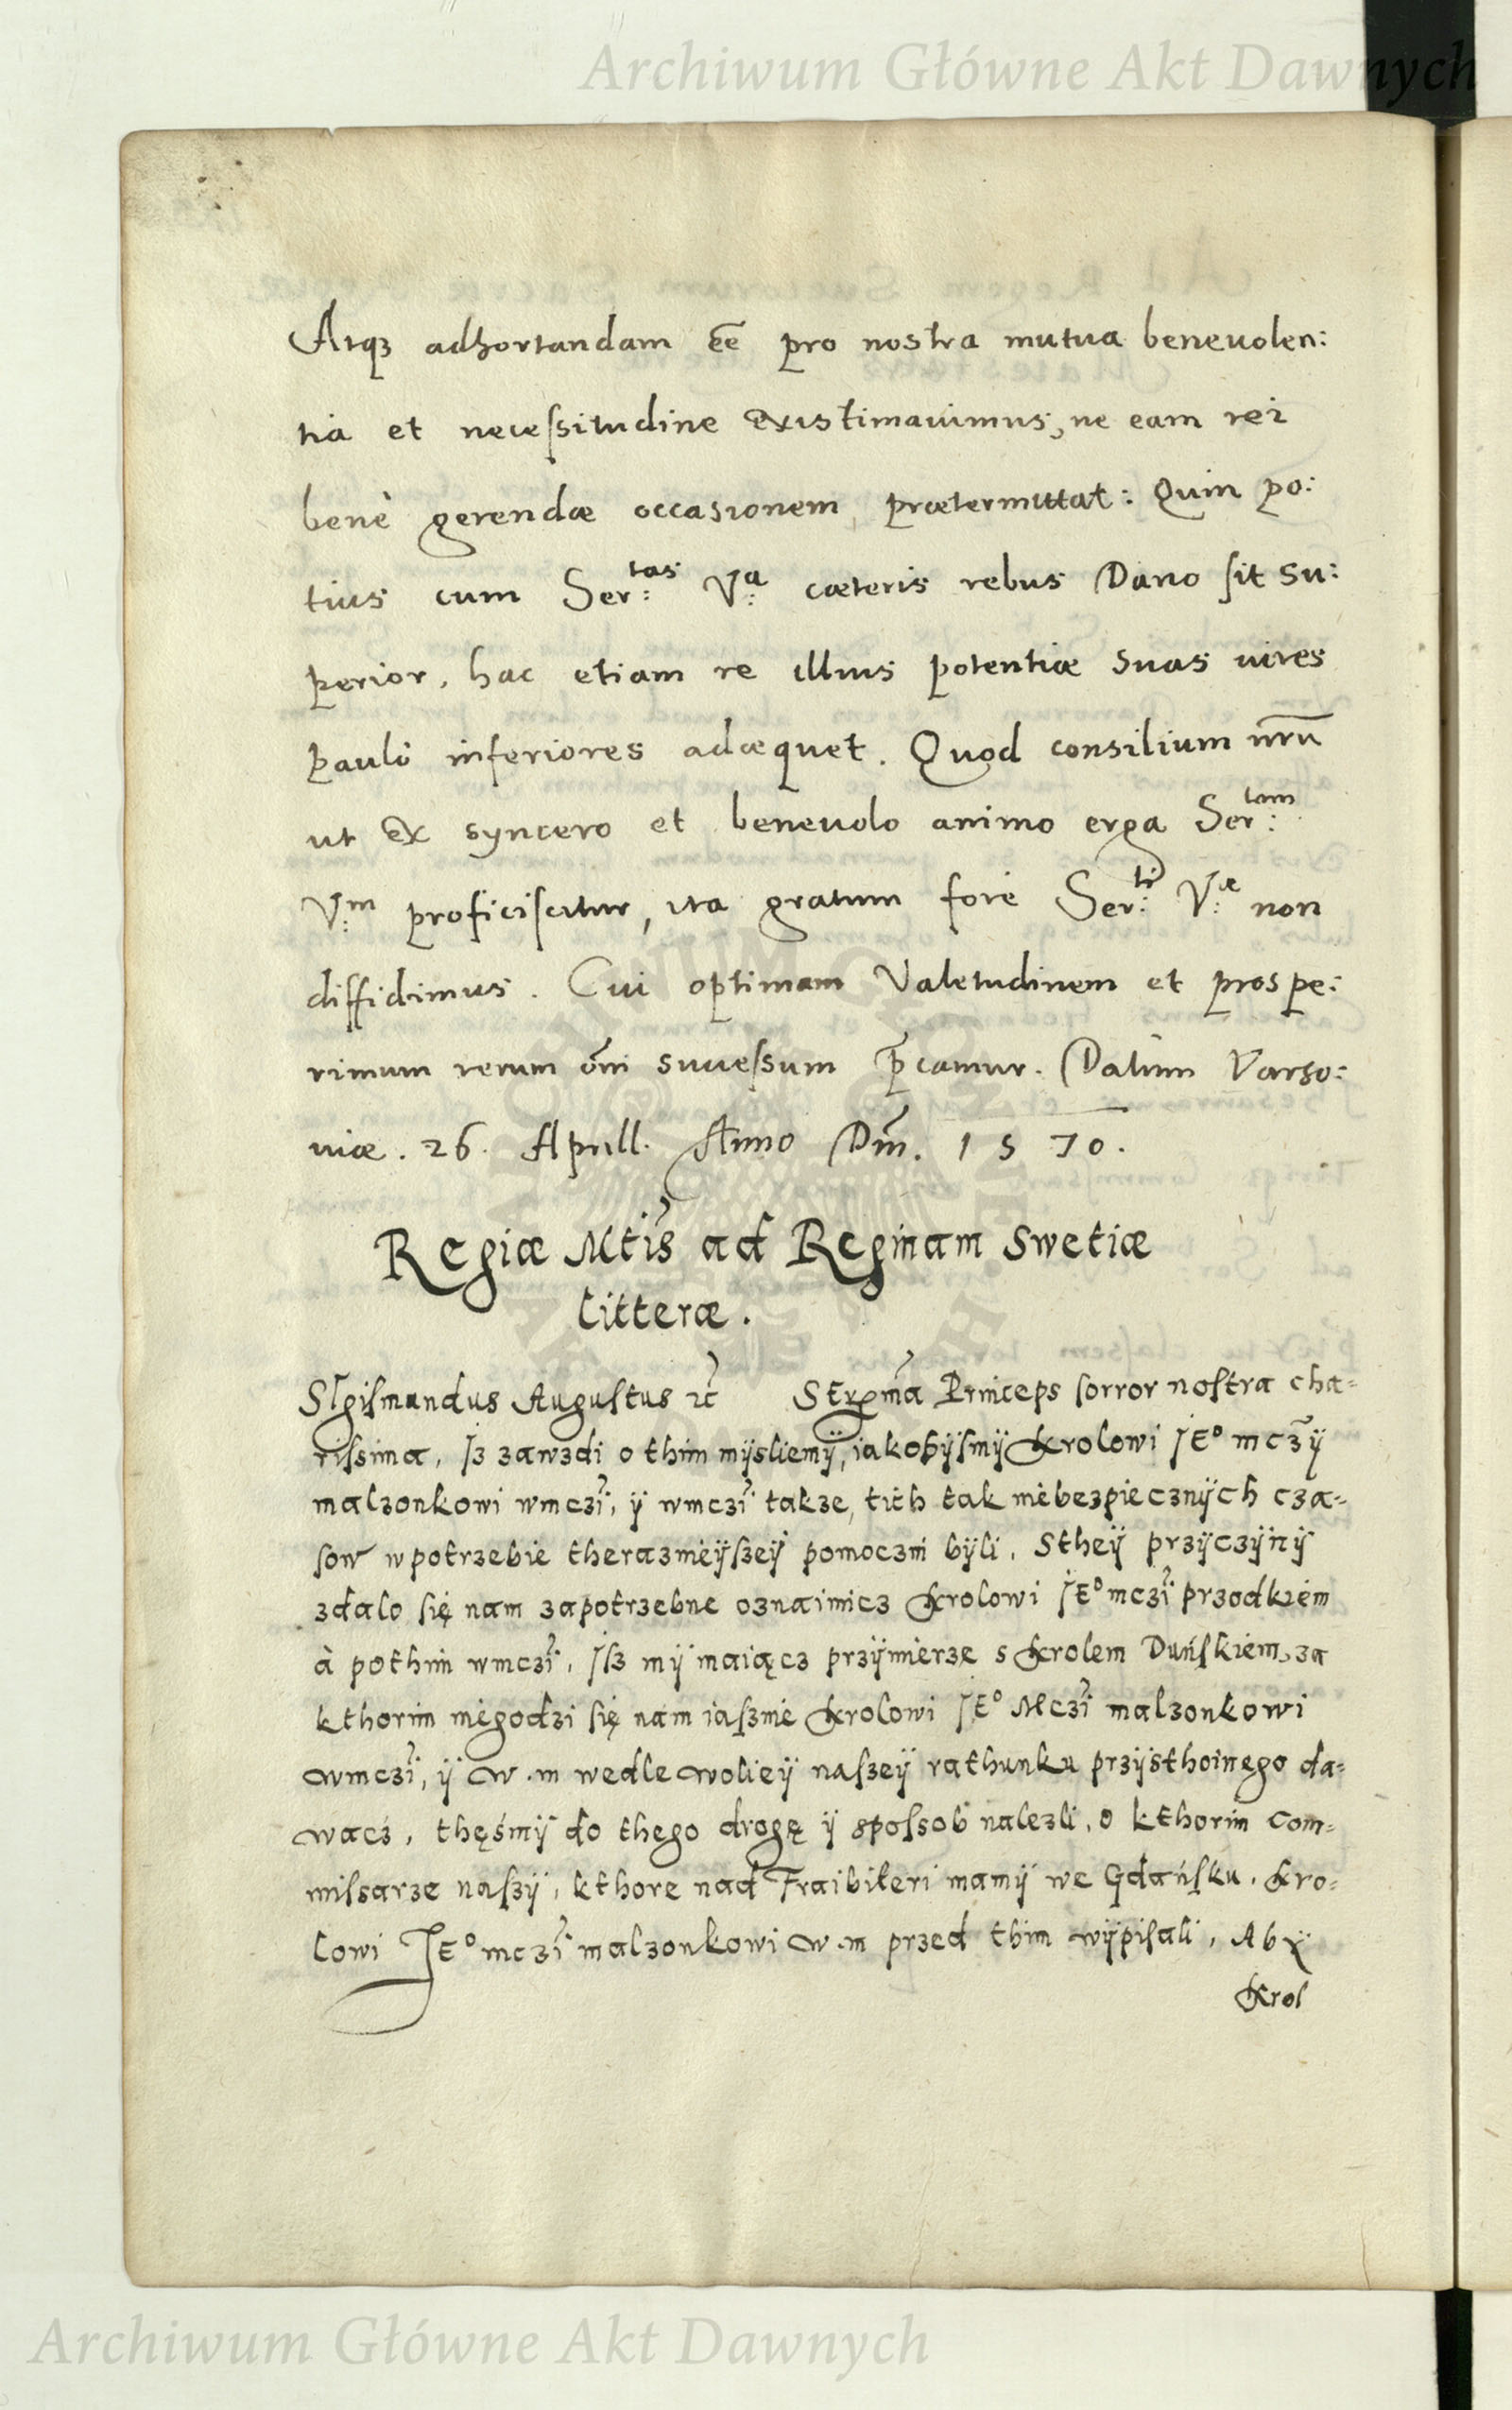 Archiwum Główne Akt Dawnych
Atq₃ adhortandam e͠e pro nostra mutua beneuolen:
tia et necesſitudine existimauimus, ne eam rei
benè gerendæ occasionem prætermittat: Quin po:
tius cum Ser:tas V:a cæteris rebus Dano ſit su:
perior, hac etiam re illius potentiæ suas uires
paulò inferiores adæquet. Quod consilium nr̃ũ
ut ex syncero et beneuolo animo erga Ser:tam
V:m proficiſcitur, ita gratum forè Ser:ti V:æ non
diffidimus. Cui optimam Valetudinem et prospe:
rimum rerum om̃i succeſsum p̃camur. Datum Varso:
uiæ. 26. Aprill. Anno Dm̃. 1570.
Regiæ Mtis ad Reginam Swetiæ
litteræ.
SIgiſmundus Auguſtus ꝛc̃ SErm̃a Princeps ſorror noſtra cha=
riſsima, Iʒ ʒawʒdi o thim mÿsliemÿ, iakobÿſmÿ Krolowi JEº mcʒÿ
malʒonkowi wmcʒi, ÿ wmcʒi takʒe, tich tak niebeʒpiecʒnÿch cʒa=
ſow w potrʒebie theraʒnieÿſʒeÿ pomocʒni bÿli. Stheÿ prʒÿcʒÿnÿ
ʒdalo ſię nam ʒapotrʒebne oʒnaimicʒ Krolowi JEº mcʒi prʒodkiem
à pothim wmcʒi. Iſʒ mÿ maiącʒ prʒÿmierʒe s Krolem Duńſkiem, ʒa
kthorim niegodʒi ſię nam iaſʒnie Krolowi JEº Mcʒi malʒonkowi
wmcʒi, ÿ w.m wedle wolieÿ naſʒeÿ rathunku prʒÿsthoinego da=
wacʒ, thęśmÿ do thego drogę ÿ spoſsob naleʒli, o kthorim Com=
miſsarʒe naſʒÿ, kthore nad Fraibiteri mamÿ we Gdańſku. Kro=
lowi JEº mcʒi malʒonkowi w.m prʒed thim wÿpiſali, Abÿ
Krol
Archiwum Główne Akt Dawnych